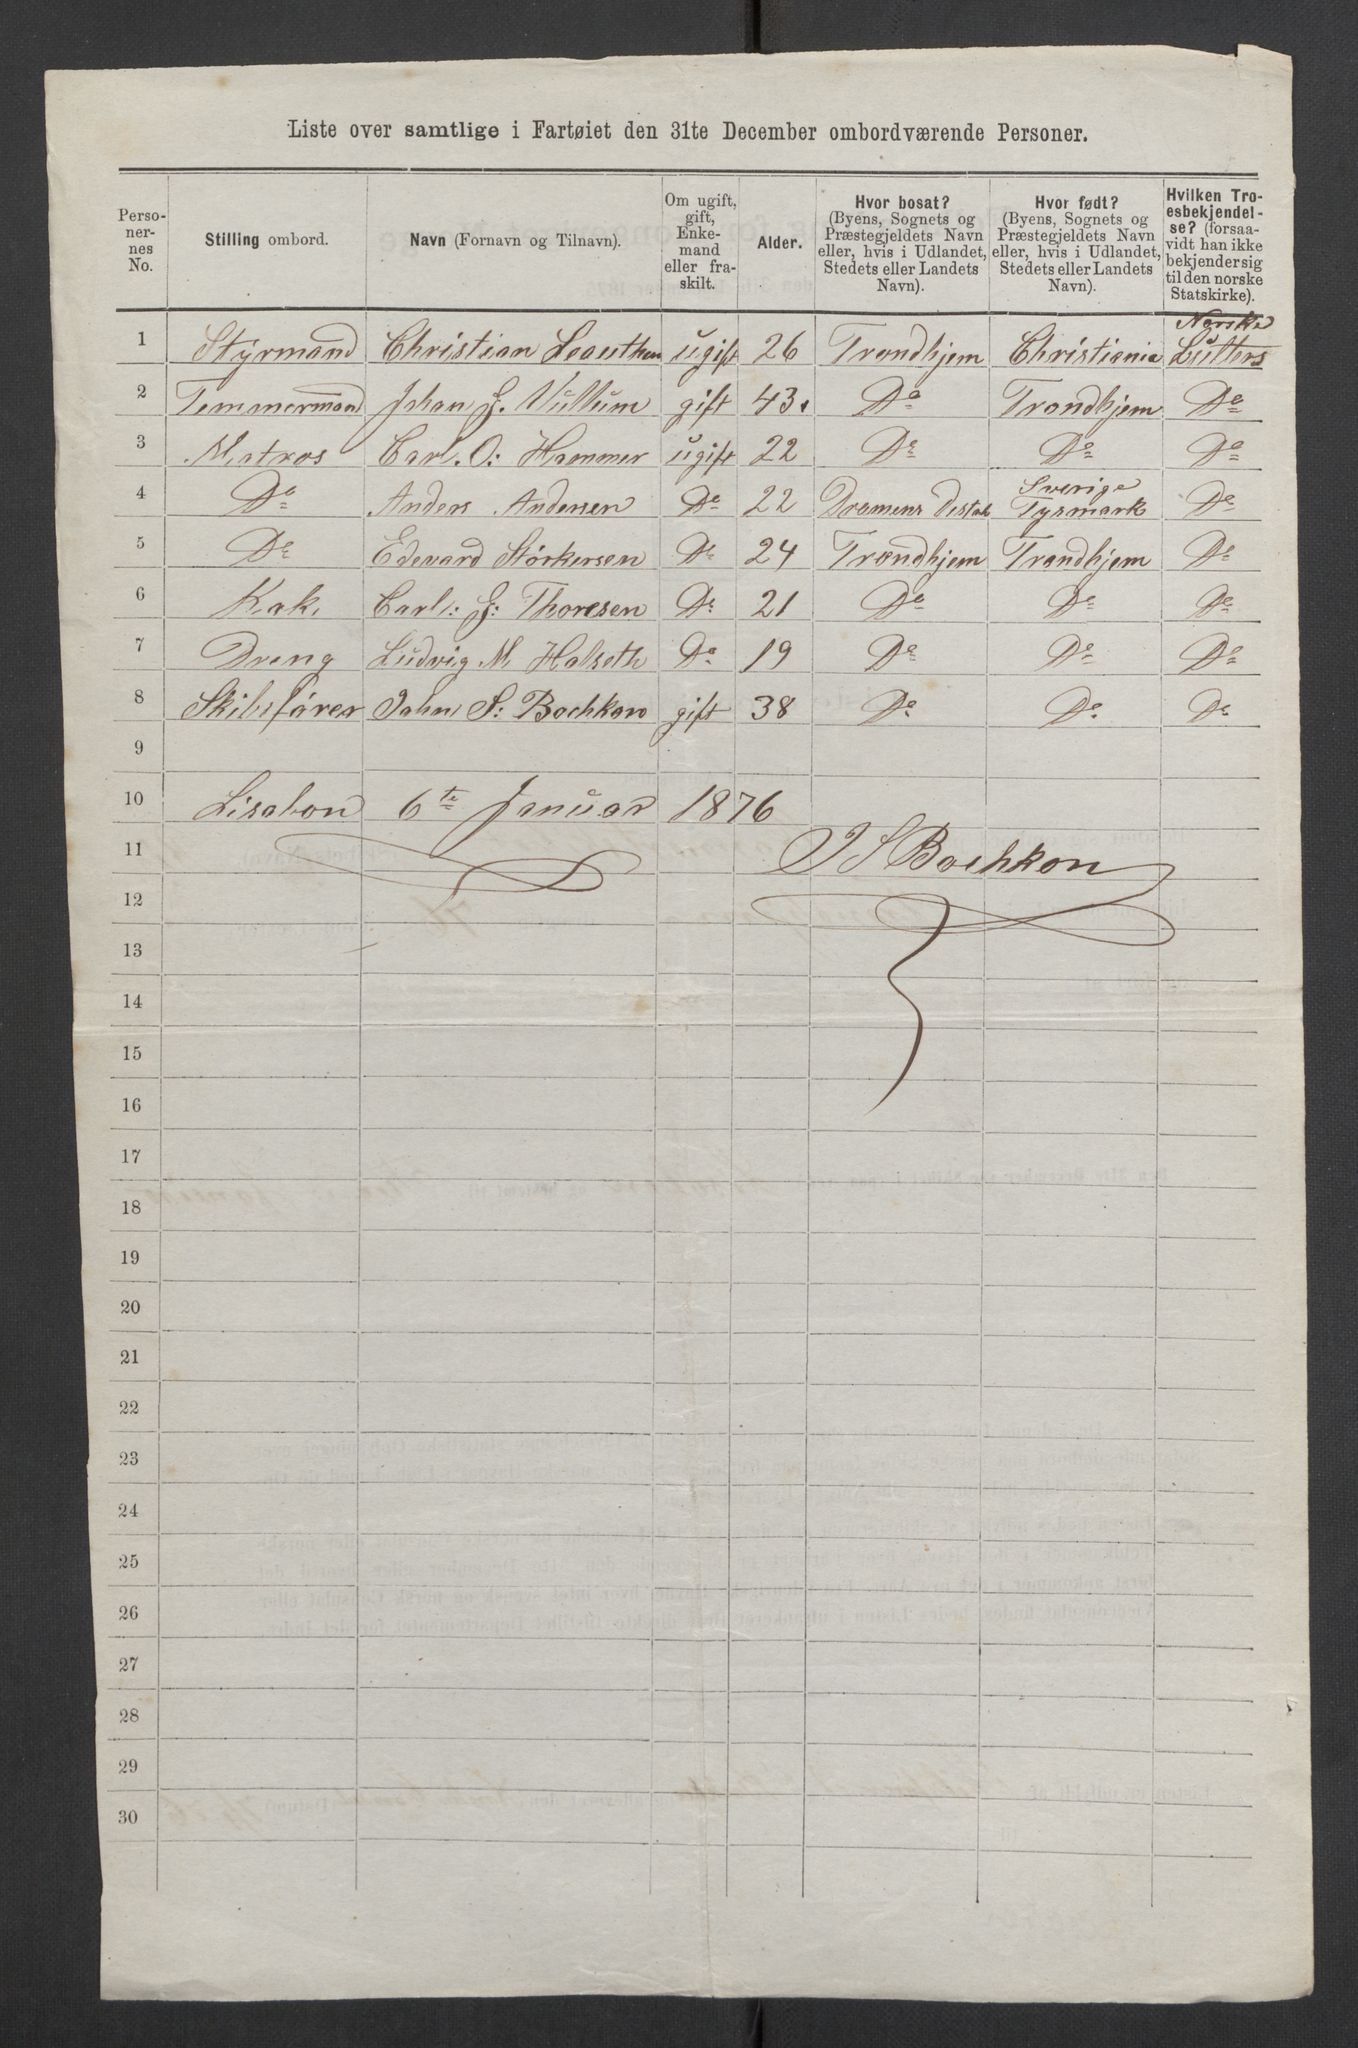 Liste over samtlige i Fartøiet den 31te December ombordværende Personer.
Perso-
ner-
nes
No.
Stilling ombord.
Navn (Fornavn og Tilnavn).
Om ugift,
gift,
Enke-
mand
eller fra-
skilt.
Alder.
Hvor bosat?
(Byens, Sognets og
Præstegjeldets Navn
eller, hvis i Udlandet,
Stedets eller Landets
Navn).
Hvor født?
(Byens, Sognets og
Præstegjeldets Navn
eller, hvis i Udlandet,
Stedets eller Landets
Navn).
Hvilken Tro-
esbekjendel-
se? (forsaa-
vidt han ikke
bekjender sig
til den norske
Statskirke).
Norske
1 Styrmand Christian ugift 26 Trondhjem Christiania Lutters
2 Temmermand Johan J. Vullum gift 43. Do Trondhjem Do
3 Matros Carl. O: Hammer ugift 22 Do Do Do
Sverige
4 Do Anders Andersen Do 22 Dramens Tysmark Do
5 Do Edevard Störkersen Do 24 Trondhjem Trondhjem Do
6 Kok. Carl: J: Thoresen Do 21 Do Do Do
7 Dreng Ludvig M. Halseth Do 19 Do Do Do
8 Skibsförer John S: Bochkon gift 38 Do Do Do
9
10 Lisabon 6te Januar 1876
11 J S Bochkon
12
13
14
15
16
17
18
19
20
21
22
23
24
25
26
27
28
29
30